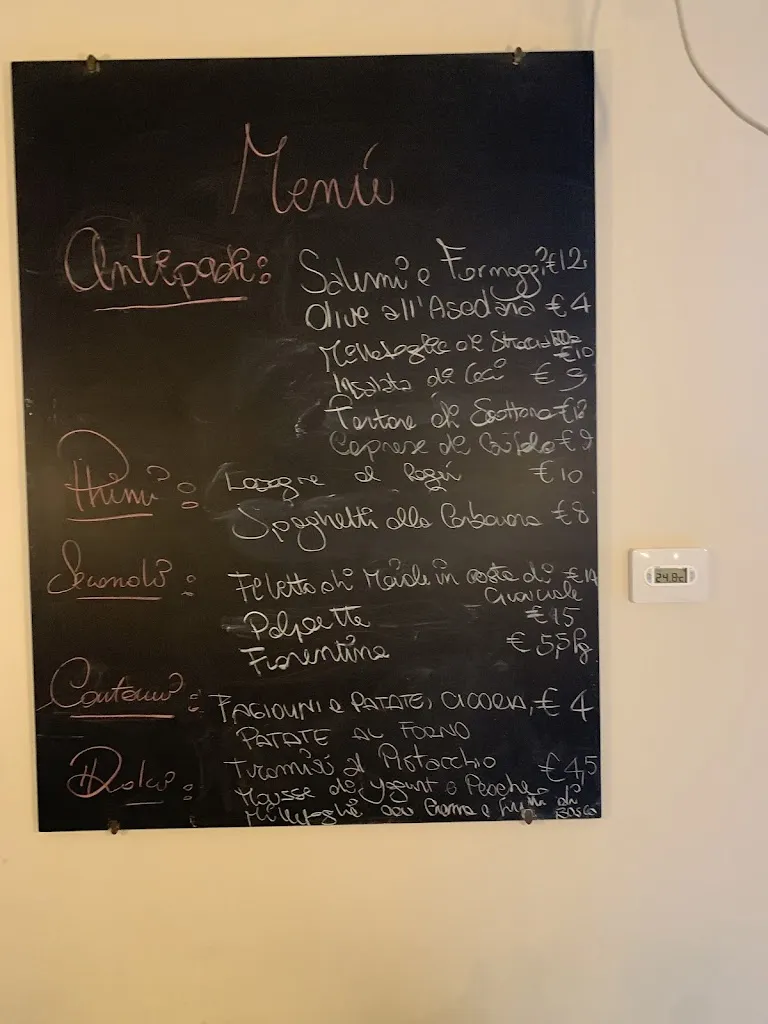 Menù
Antipasti: Salumi e Formaggi €12
Olive all'Ascolana €4
Millefoglie di Stracciatella €10
Insalata di Ceci € 9
Tartare di Scottona €12
Caprese di Bufala €9
Primi: Lasagne al Ragù €10
Spaghetti alla Carbonara €8
Secondi: Filetto di Maiale in crosta di €14
Guanciale
Polpette €15
Fiorentina € 55kg
Contorni: FAGIOLINI e PATATE, CICORIA, €4
PATATE AL FORNO
Dolci: Tiramisù al Pistacchio €4,5
Mousse di Yogurt e Pesche
Millefoglie con Crema e frutti di
BOSCO
24.8c